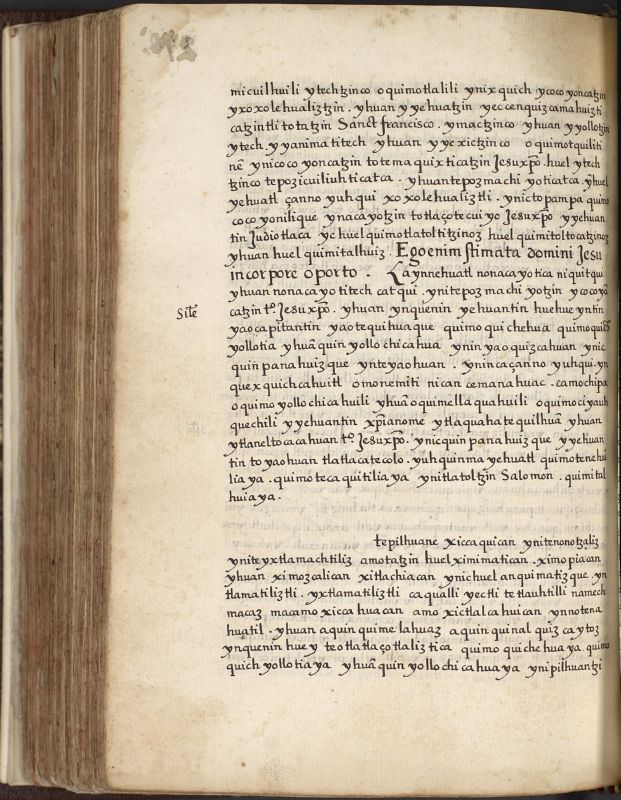 micuilhuili ytechtzinco oquimotlalili ynixquich ycocoyoncatzin
yxoxolehualiztzin . yhuan yyehuatzin yeccenquizcamahuizti
catzintli totatzin Sanct francisco . ymactzinco yhuan yyollotzin
ytech . yyanimatitech yhuan yyexictzinco oquimotquiliti
nẽ ynicocoyoncatzin totemaquixticatzin Jesuxp̃o . huel ytech
tzinco tepozicuiliuhticatca . yhuan tepozmachiyoticatca . ỹhuel
yehuatl çanno yuhqui xoxolehualiztli . ynictopampa quimo
cocoyonilique ynacayotzin totlaçotecuiyo Jesuxp̃o yyehuan
tin Judiotlaca yc huel quimotlatoltitzinoz huel quimitoltocatzinoz
yhuan huel quimitalhuiz . Ego enim stimata domini Jesu
in corpore oporto . Laynnehuatl nonacayotica niquitqui
yhuan nonacayotitech catqui . ynitepozmachiyotzin ycocoyõ
catzin tº. Jesuxp̃o . yhuan ynquenin yehuantin huehueyntin
Site
yaocapitantin yaotequihuaque quimoquichehua quimoquich
yollotia yhuã quinyollochicahua ynin yaoquizcahuan ynic
quinpanahuizque ynteyaohuan . ynin caçanno yuhqui . yn
quexquichcahuitl omonemiti nican cemanahuac . ca mochipa
oquimoyollochicahuili yhuã oquimellaquahuili oquimociyauh
quechili yyehuantin xp̃ianome ytlaquahatequilhuã yhuan
ytlaneltocacahuan tº Jesuxp̃o . ynic quinpanahuizque yyehuan
tin toyaohuan tlatlacatecolo . yuhquinma yehuatl quimotenehui
liaya . quimotecaquitiliaya ynitlatoltzin Salomon . quimital
huiaya .
tepilhuane xiccaquican ynitenonotzaliz
yniteyxtlamachtiliz amotatzin huel ximimatican . ximopiacan
yhuan ximozcalican xitlachiacan ynic huel anquimatizque . yn
tlamatiliztli . yxtlamatiliztli ca qualli yectli tetlauhtilli namech
macaz macamo xiccahuacan amo xictlalcahuican ynnotena
huatil . yhuan aquin quimelahuaz aquin quinalquizcaytoz
ynquenin huey teotlatlaçotlaliztica quimoquichehuaya . quimo
quichyollotiaya yhuã quinyollochicahuaya ynipilhuantzi